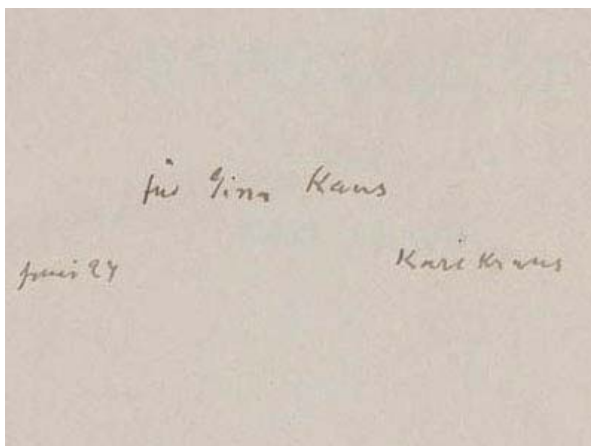 für Gina Kaus
Juni 24
Karl Kraus